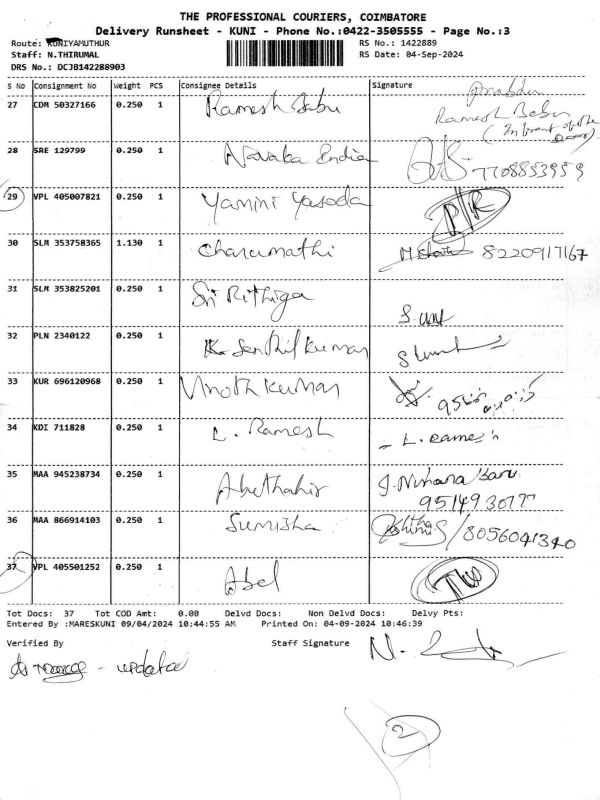 THE PROFESSIONAL COURIERS, COIMBATORE
Delivery Runsheet - KUNI - Phone No.:0422-3505555 - Page No.:3
Route: KUNIYAMUTHUR
RS No.: 1422889
Staff: N.THIRUMAL
RS Date: 04-Sep-2024
DRS No.: DCJB142288903
S No Consignment No Weight PCS Consignee Details Signature
27 CDM 50327166 0.250 1 Ramesh Babu Ramesh Babu
28 SRE 129799 0.250 1 Navaka India 7708853959
29 VPL 405007821 0.250 1 Yamini Yasoda D/R
30 SLM 353758365 1.130 1 Charumathi 8220917167
31 SLM 353825201 0.250 1 Sri Rithiga
32 PLN 2340122 0.250 1 K. Senthil kumar
33 KUR 696120968 0.250 1 Vinoth kumar
34 KDI 711828 0.250 1 L. Ramesh L. Ramesh
35 MAA 945238734 0.250 1 Abuthahir
36 MAA 866914103 0.250 1 Sumisha 8056041340
37 VPL 405501252 0.250 1 Abel
Tot Docs: 37 Tot COD Amt: 0.00 Delvd Docs: Non Delvd Docs: Delvy Pts:
Entered By :MARESKUNI 09/04/2024 10:44:55 AM Printed On: 04-09-2024 10:46:39
Verified By Staff Signature
2